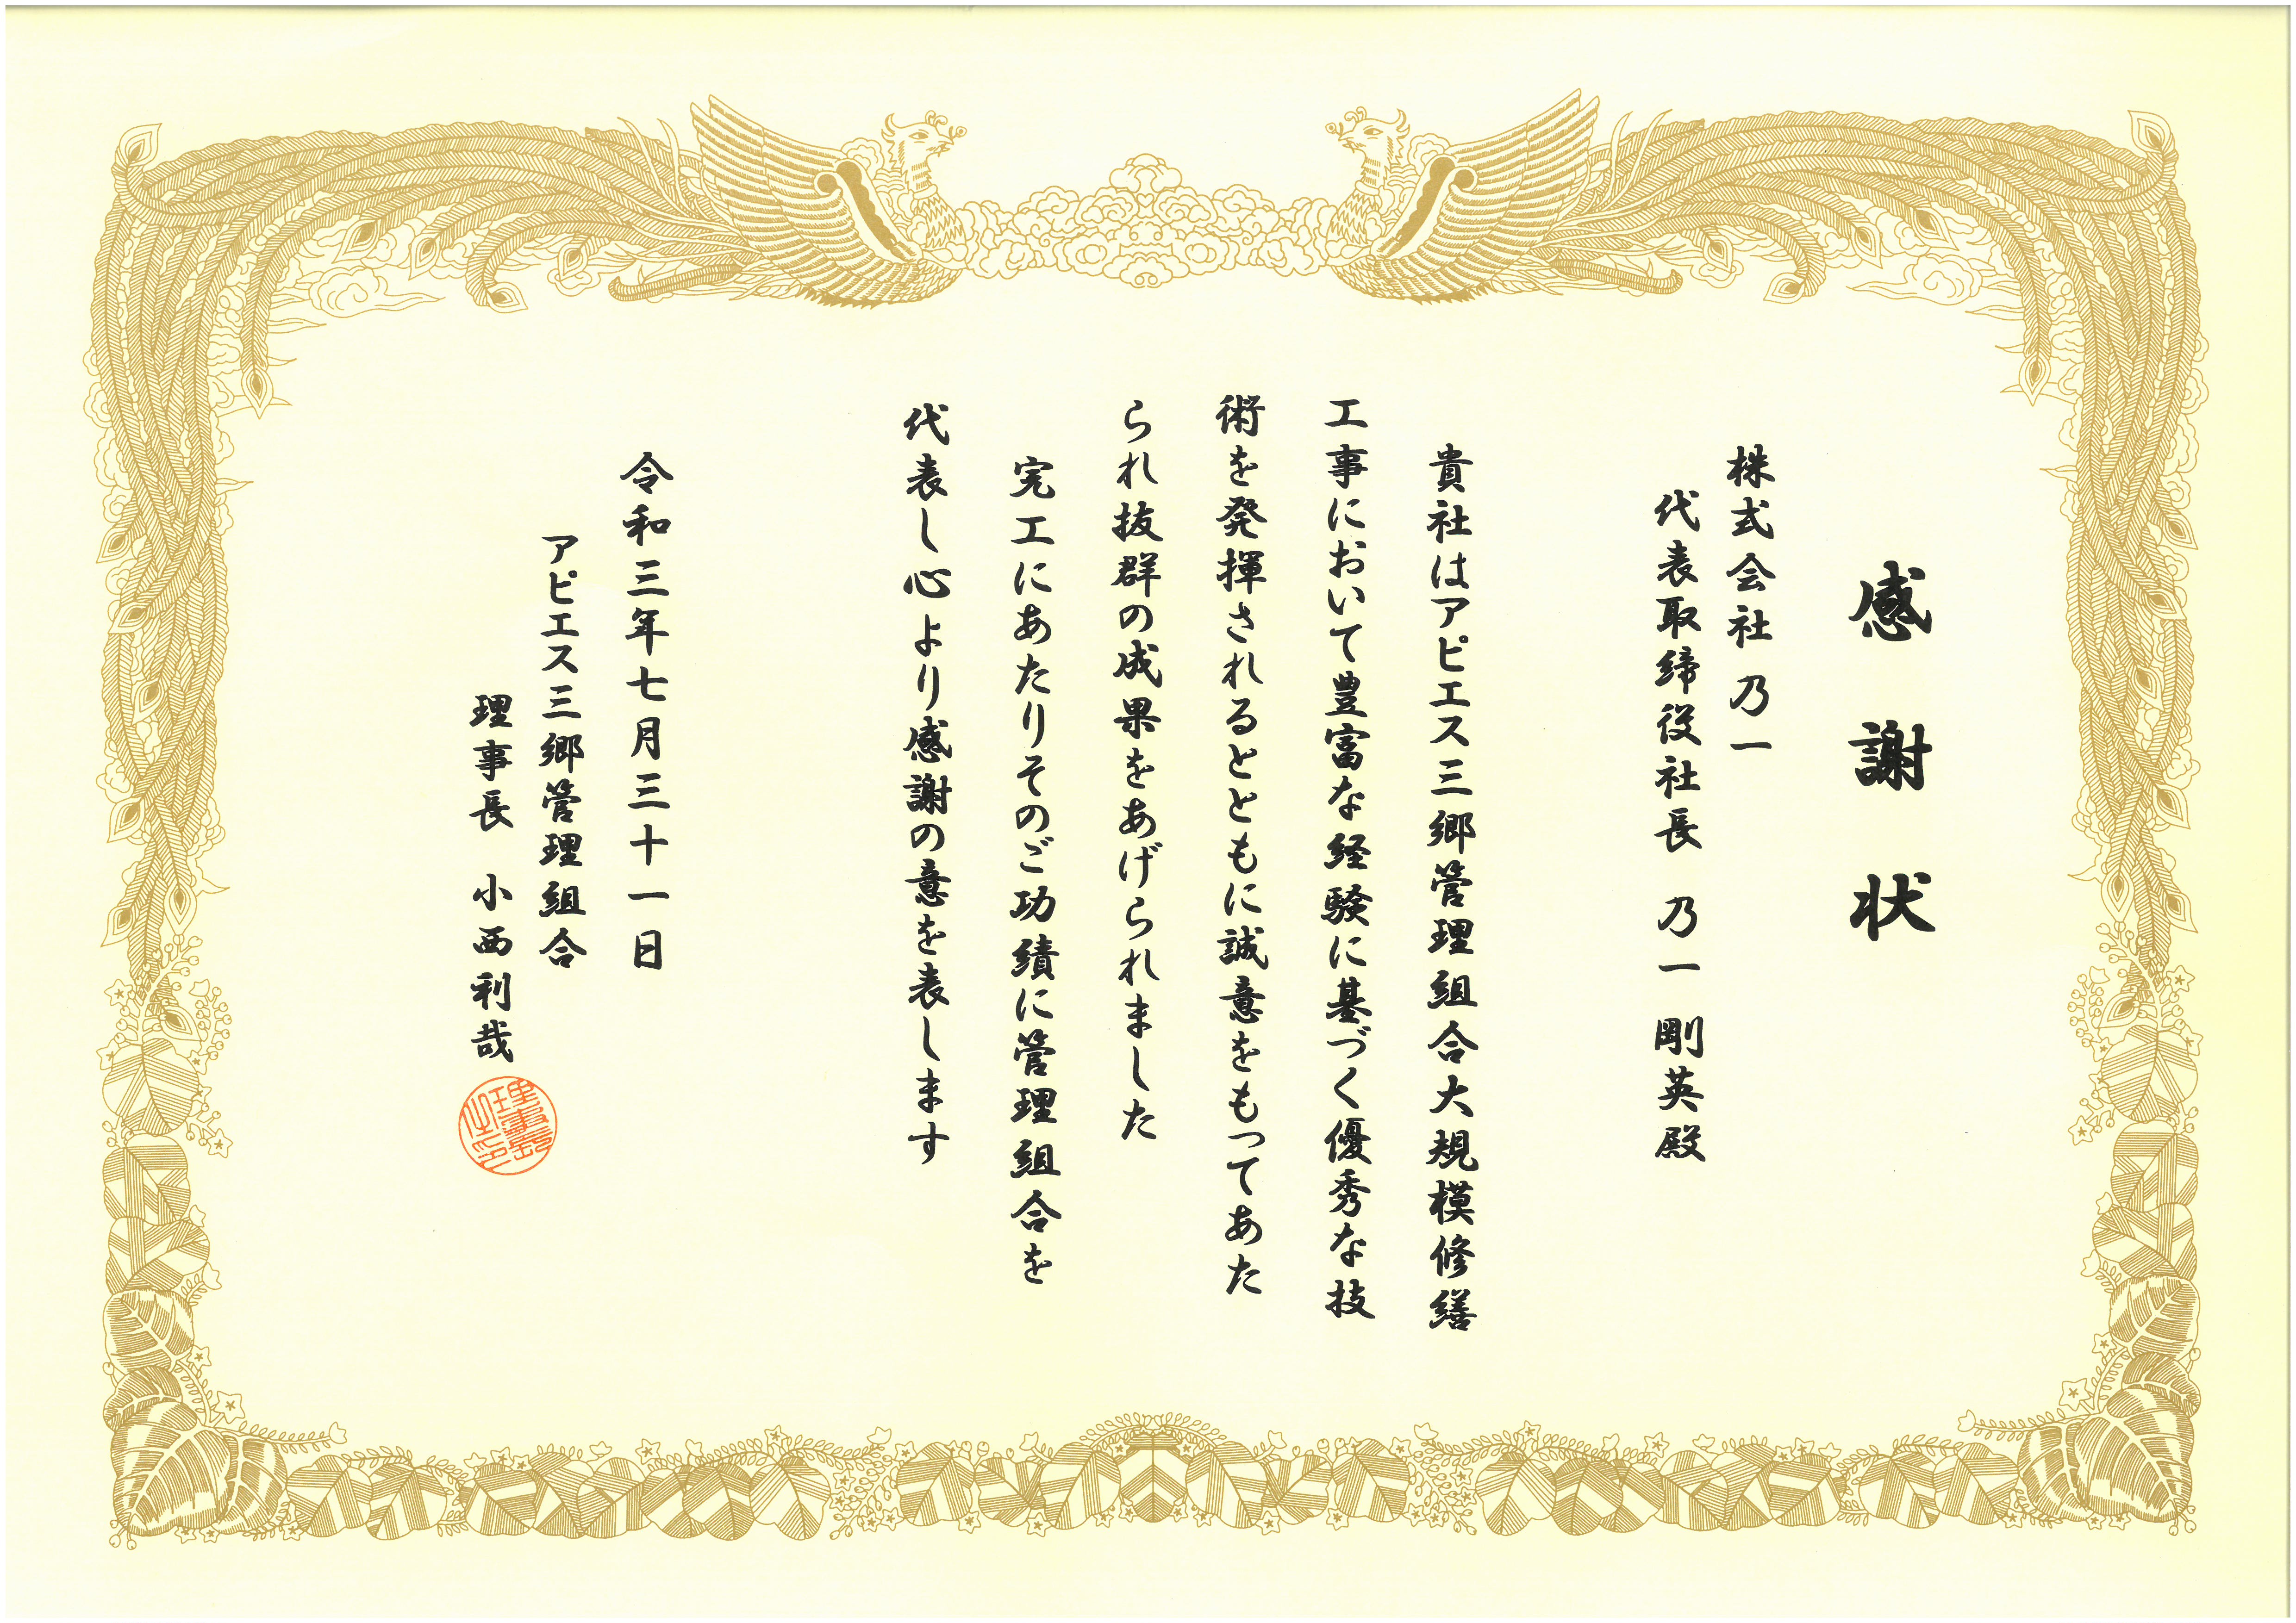 感謝状
株式会社 乃一
代表取締役社長 乃一 剛英 殿
貴社はアピエス三郷管理組合大規模修繕
工事において豊富な経験に基づく優秀な技
術を発揮されるとともに誠意をもってあた
られ抜群の成果をあげられました
完工にあたりそのご功績に管理組合を
代表し心より感謝の意を表します
令和三年七月三十一日
アピエス三郷管理組合
理事長 小西利哉
理事長之印